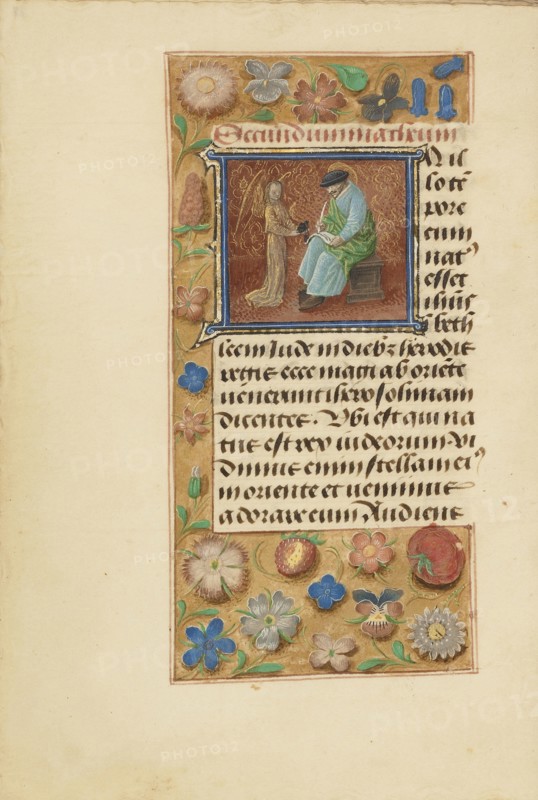 Secundum matheum
N il
lo tē
pore
cum
natꝰ
esset
ihūs
ī beth
leem Jude in diebꝫ herodis
regis ecce magi ab oriēte
uenerunt iherosolimam
dicentes. Vbi est qui na
tus est rex iudeorum. Vi
dimus enim stellam eiꝰ
in oriente et uenimus
adorare eum Audiens
PHOTO12